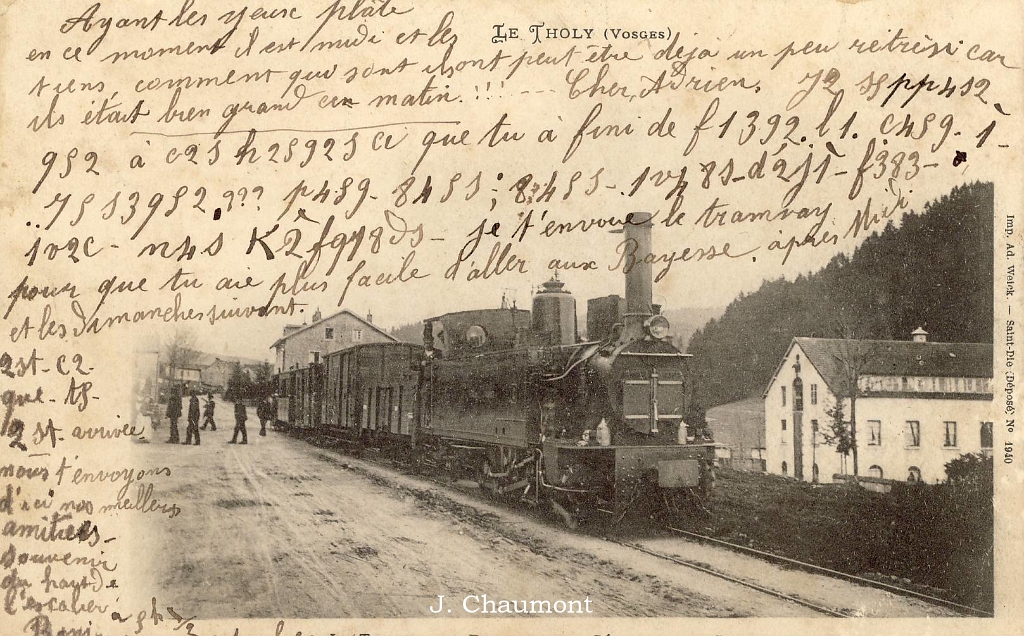 Ayant les yeux plate
LE THOLY (VOSGES)
en ce moment il est midi et les
tiens, comment qui sont ils ont peut être déjà un peu rétréssi car
ils était bien grand ce matin. !!! --- Cher, Adrien, J2 spp4s2
952 à c2s h2s92s ce que tu à fini de f1392. l1. c4s9- 1-
..7ss3952.??? p4s9- 84ss; 84ss- 1v4 8s- d2j1- f383-
1v2c - n4s K2fg98Ds - je t'envoie le tramvay.
pour que tu aie plus facile d'aller aux Bayesse. après Midi
et les dimanches suivant.
2st- c2
que- ts-
2st- arrivée
nous t'envoyons
d'ici nos meilleurs
amitiés-
souvenir
du haut de
l'escalier
à 5h 1/2
Imp. Ad. Weick. — Saint-Dié (Déposé) No 1940
J. Chaumont